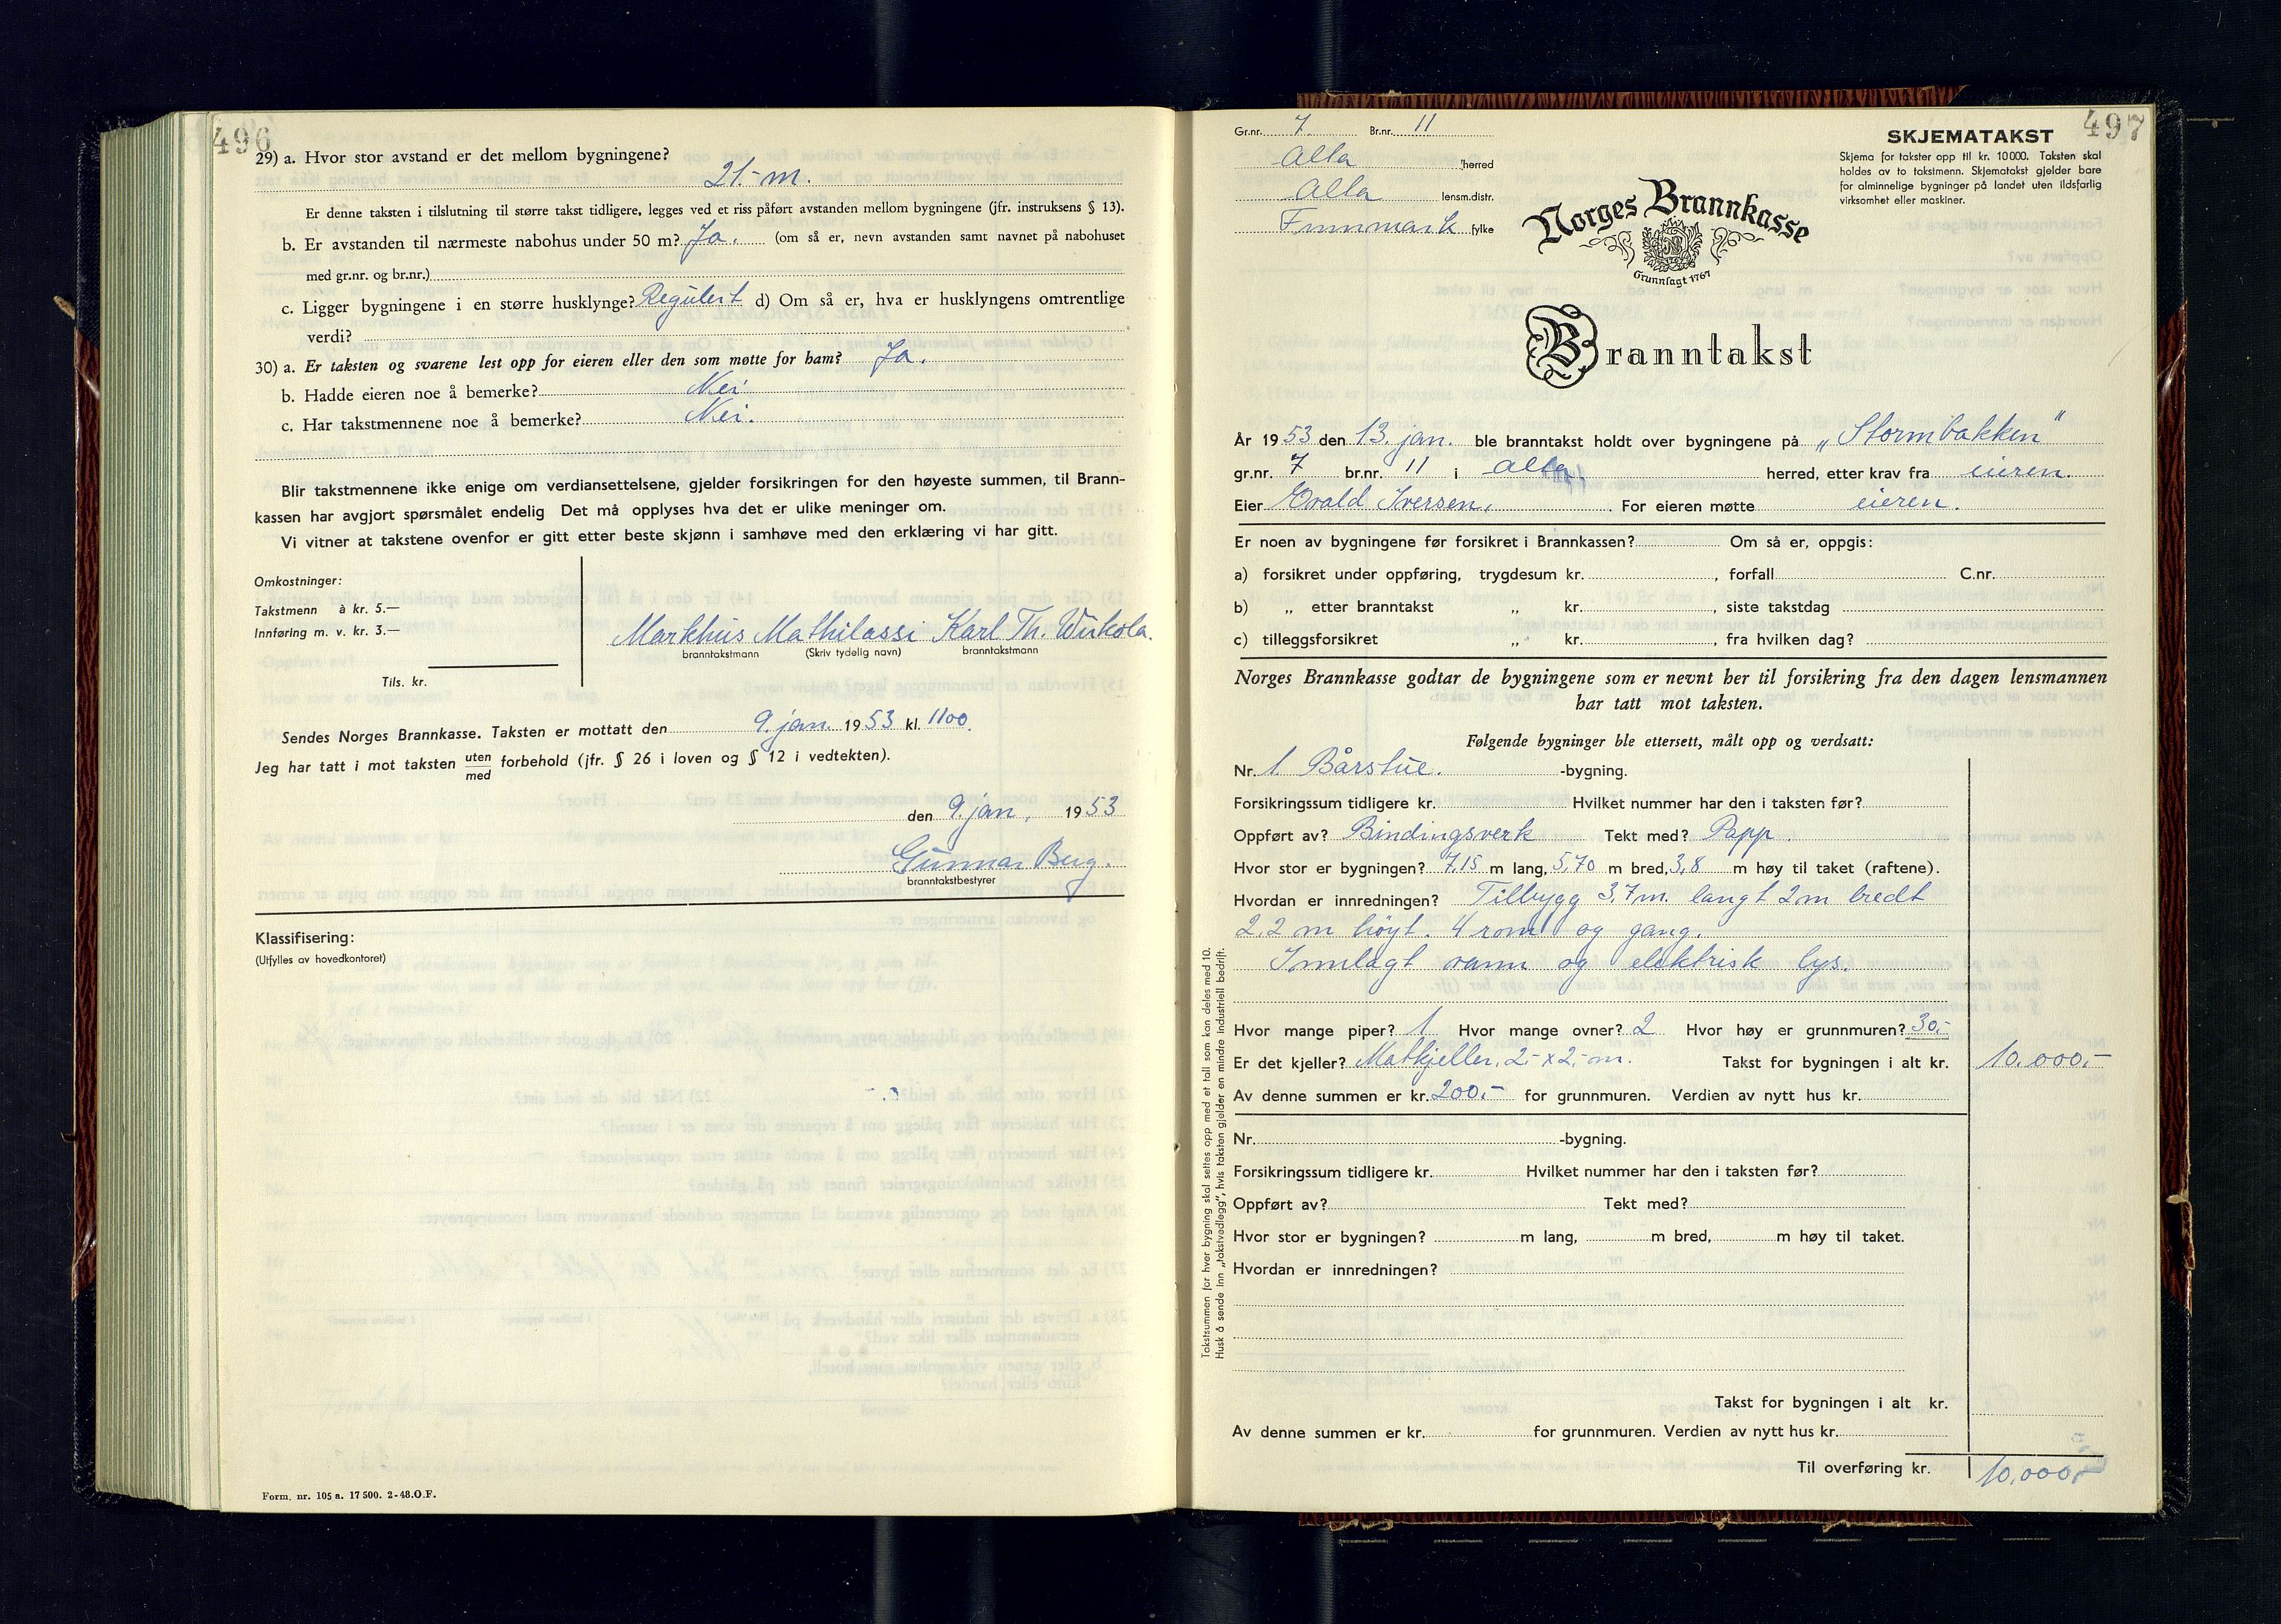 496
29) a. Hvor stor avstand er det mellom bygningene?
21.- m.
Er denne taksten i tilslutning til større takst tidligere, legges ved et riss påført avstanden mellom bygningene (jfr. instruksens § 13).
b. Er avstanden til nærmeste nabohus under 50 m? Ja. (om så er, nevn avstanden samt navnet på nabohuset
med gr.nr. og br.nr.)
c. Ligger bygningene i en større husklynge? Regulert d) Om så er, hva er husklyngens omtrentlige
verdi?
30) a. Er taksten og svarene lest opp for eieren eller den som møtte for ham? Ja.
b. Hadde eieren noe å bemerke? Nei
c. Har takstmennene noe å bemerke? Nei.
Blir takstmennene ikke enige om verdiansettelsene, gjelder forsikringen for den høyeste summen, til Brann-
kassen har avgjort spørsmålet endelig Det må opplyses hva det er ulike meninger om.
Vi vitner at takstene ovenfor er gitt etter beste skjønn i samhøve med den erklæring vi har gitt.
Omkostninger:
Takstmenn à kr. 5.—
Innføring m. v. kr. 3.—
Tils. kr.
Markhus Mathilassi Karl Th. Wirkola.
branntakstmann (Skriv tydelig navn) branntakstmann
Sendes Norges Brannkasse. Taksten er mottatt den 9. jan. 1953 kl. 1100.
Jeg har tatt i mot taksten uten
med forbehold (jfr. § 26 i loven og § 12 i vedtekten).
den 9. jan. 1953
Gunnar Berg.
branntakstbestyrer
Klassifisering:
(Utfylles av hovedkontoret)
Form. nr. 105 a. 17 500. 2-48. O.F.
497
Gr.nr. 7. Br.nr. 11
Alta herred
Alta lensm.distr.
Finnmark fylke
SKJEMATAKST
Skjema for takster opp til kr. 10 000. Taksten skal
holdes av to takstmenn. Skjematakst gjelder bare
for alminnelige bygninger på landet uten ildsfarlig
virksomhet eller maskiner.
Norges Brannkasse
Grunnlagt 1767
Branntakst
År 1953 den 13. jan. ble branntakst holdt over bygningene på „Stormbakken"
gr.nr. 7 br.nr. 11 i Alta herred, etter krav fra eieren.
Eier Evald Iversen. For eieren møtte eieren.
Er noen av bygningene før forsikret i Brannkassen? Om så er, oppgis:
a) forsikret under oppføring, trygdesum kr. , forfall C.nr.
b) „ etter branntakst „ kr. , siste takstdag
c) tilleggsforsikret „ kr. , fra hvilken dag?
Norges Brannkasse godtar de bygningene som er nevnt her til forsikring fra den dagen lensmannen
har tatt mot taksten.
Følgende bygninger ble ettersett, målt opp og verdsatt:
Nr. 1. Bårstue. -bygning.
Forsikringssum tidligere kr. Hvilket nummer har den i taksten før?
Oppført av? Bindingsverk Tekt med? Papp.
Hvor stor er bygningen? 7,15 m lang, 5,70 m bred, 3,8 m høy til taket (raftene).
Hvordan er innredningen? Tilbygg 3,7 m. langt 2 m bredt
2,2 m høyt. 4 rom og gang.
Innlagt vann og elektrisk lys.
Hvor mange piper? 1 Hvor mange ovner? 2 Hvor høy er grunnmuren? 30.-
Er det kjeller? Matkjeller. 2.- x 2.- m. Takst for bygningen i alt kr. 10.000.-
Av denne summen er kr. 200.- for grunnmuren. Verdien av nytt hus kr.
Nr. -bygning.
Forsikringssum tidligere kr. Hvilket nummer har den i taksten før?
Oppført av? Tekt med?
Hvor stor er bygningen? m lang, m bred, m høy til taket.
Hvordan er innredningen?
Takst for bygningen i alt kr.
Av denne summen er kr. for grunnmuren. Verdien av nytt hus kr.
Til overføring kr. 10.000,-
Takstsummen for hver bygning skal settes opp med et tall som kan deles med 10.
Husk å sende inn „takstvedlegg", hvis taksten gjelder en mindre industriell bedrift.